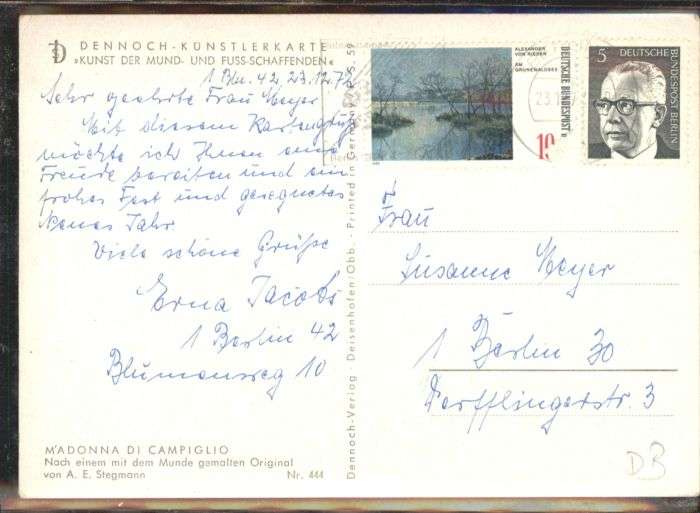 DENNOCH-KÜNSTLERKARTE
»KUNST DER MUND- UND FUSS-SCHAFFENDEN«
1 Bln. 42, 23.12.72
Sehr geehrte Frau Meyer
Mit diesem Kartengruß
möchte ich Ihnen eine
Freude bereiten und ein
frohes Fest und gesegnetes
Neues Jahr.
Viele schöne Grüße
Erna Jacobs
1 Berlin 42
Blumenweg 10
M'ADONNA DI CAMPIGLIO
Nach einem mit dem Munde gemalten Original
von A. E. Stegmann Nr. 444
Dennoch-Verlag · Deisenhofen/Obb. · Printed in Germany
S. 59
ALEXANDER
VON RIESEN
AM
GRUNEWALDSEE
DEUTSCHE BUNDESPOST
10
23.1
5
DEUTSCHE
BUNDESPOST BERLIN
Frau
Susanne Meyer
1 Berlin 30
Derfflingerstr. 3
DB